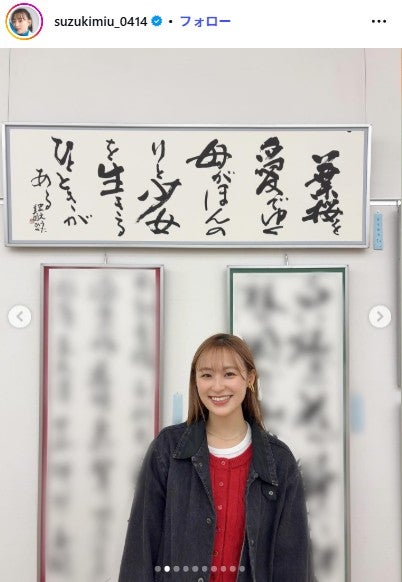 suzukimiu_0414 • フォロー
葉桜を
愛でゆく
母がほんの
りと少女
を生きる
ひとときが
ある